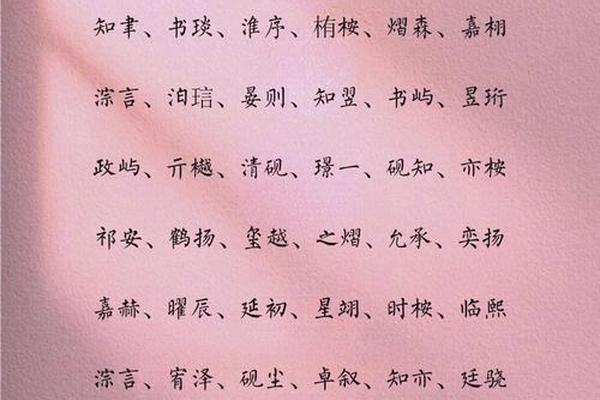 知聿、书琰、淮序、栯桉、熠森、嘉栩
淙言、洎琂、晏则、知翌、书屿、昱珩
政屿、亓樾、清砚、璟一、砚知、亦桉
祁安、鹤扬、玺越、之熠、允承、奕扬
嘉赫、曜辰、延初、星翊、时桉、临熙
淙言、宥泽、砚尘、卓叙、知亦、廷骁